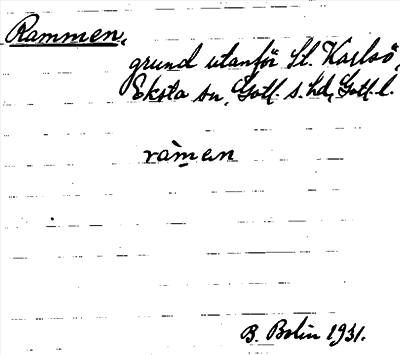 Rammen,
grund utanför St. Karlsö,
Eksta sn, Gotl. s. hd, Gotl. l.
ràmen
B. Bolin 1931.